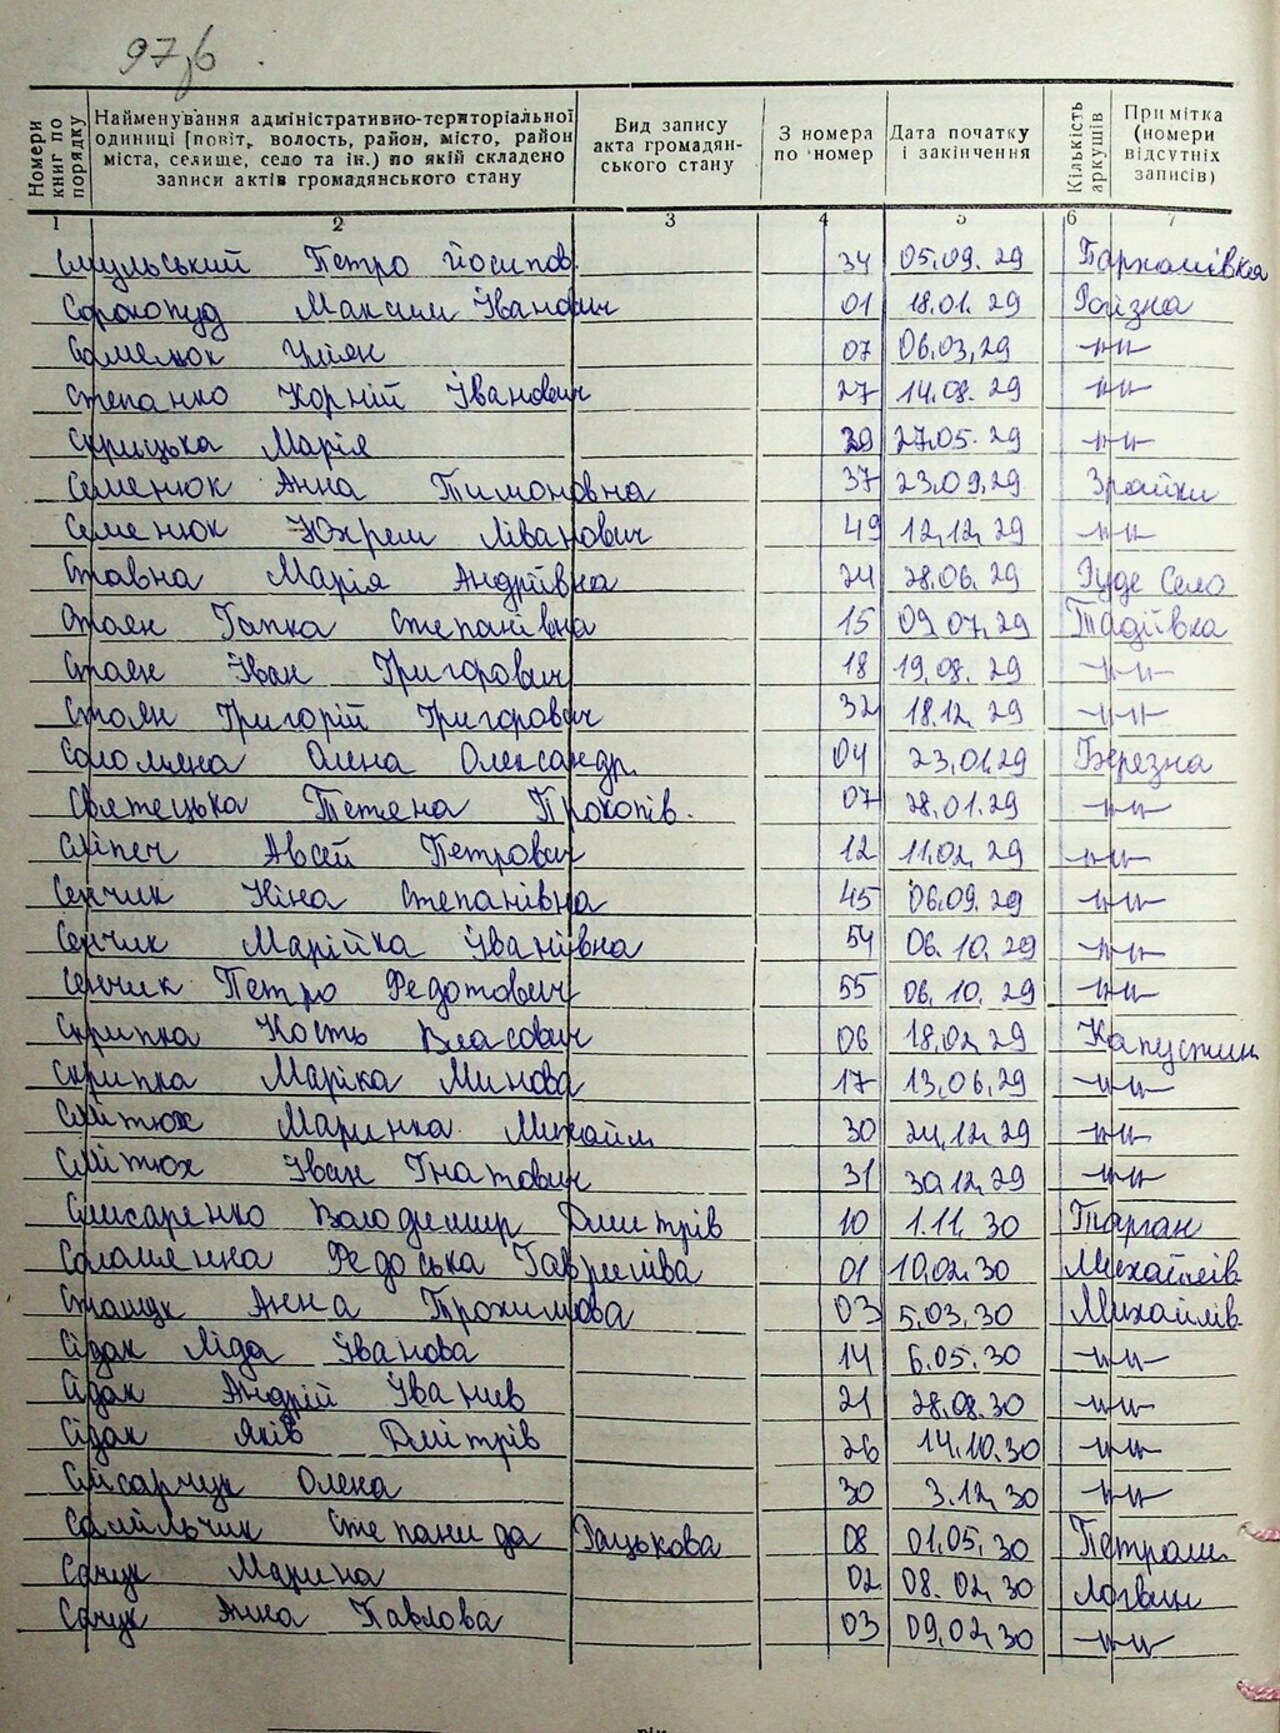 97,б
Номери книг по порядку
Найменування адміністративно-територіальної одиниці [повіт, волость, район, місто, район міста, селище, село та ін.) по якій складено записи актів громадянського стану
Вид запису акта громадян-ського стану
З номера по номер
Дата початку і закінчення
Кількість аркушів
Примітка (номери відсутніх записів)
1 2 3 4 5 6 7
Смульський Петро Йосипов. 34 05.09.29 Пархомівка
Сорокопуд Максим Іванович 01 18.01.29 Рогізна
Самелюк Уліян 07 06.03.29 -//-
Степанко Корній Іванович 27 14.08.29 -//-
Скрицька Марія 39 27.05.29 -//-
Семенюк Анна Тимоновна 37 23.09.29 Зрайки
Семенюк Юхрем Ліванович 49 12.12.29 -//-
Ставна Марія Андріївна 24 28.06.29 Руде Село
Стоян Гапка Степанівна 15 09.07.29 Тадіївка
Стоян Іван Григорович 18 19.08.29 -//-
Стоян Григорій Григорович 32 18.12.29 -//-
Соломяна Олена Олександр. 04 23.01.29 Березна
Святецька Тетяна Прокопів. 07 28.01.29 -//-
Сліпеч Авсей Петрович 12 11.02.29 -//-
Сенчик Ніна Степанівна 45 06.09.29 -//-
Сенчик Марійка Іванівна 54 06.10.29 -//-
Сенчик Петро Федотович 55 06.10.29 -//-
Скрипка Кость Власович 06 18.02.29 Капустин
Скрипка Маріка Минова 17 13.06.29 -//-
Смітюх Маринка Михайл. 30 24.12.29 -//-
Смітюх Іван Гнатович 31 30.12.29 -//-
Слисаренко Володимир Дмитрів 10 1.11.30 Тарган
Соломянна Федоська Гаврилівва 01 10.02.30 Михайлів.
Сташук Анна Трохимова 03 5.03.30 Михайлів.
Сідак Ліда Іванова 14 6.05.30 -//-
Сідак Андрій Іванів 21 28.08.30 -//-
Сідак Яків Дмітрів 26 14.10.30 -//-
Слісарчук Олена 30 3.12.30 -//-
Самільчик Степанида Гацькова 08 01.05.30 Петраш.
Сачук Марина 02 08.02.30 Логвин
Сачук Анна Павлова 03 09.02.30 -//-